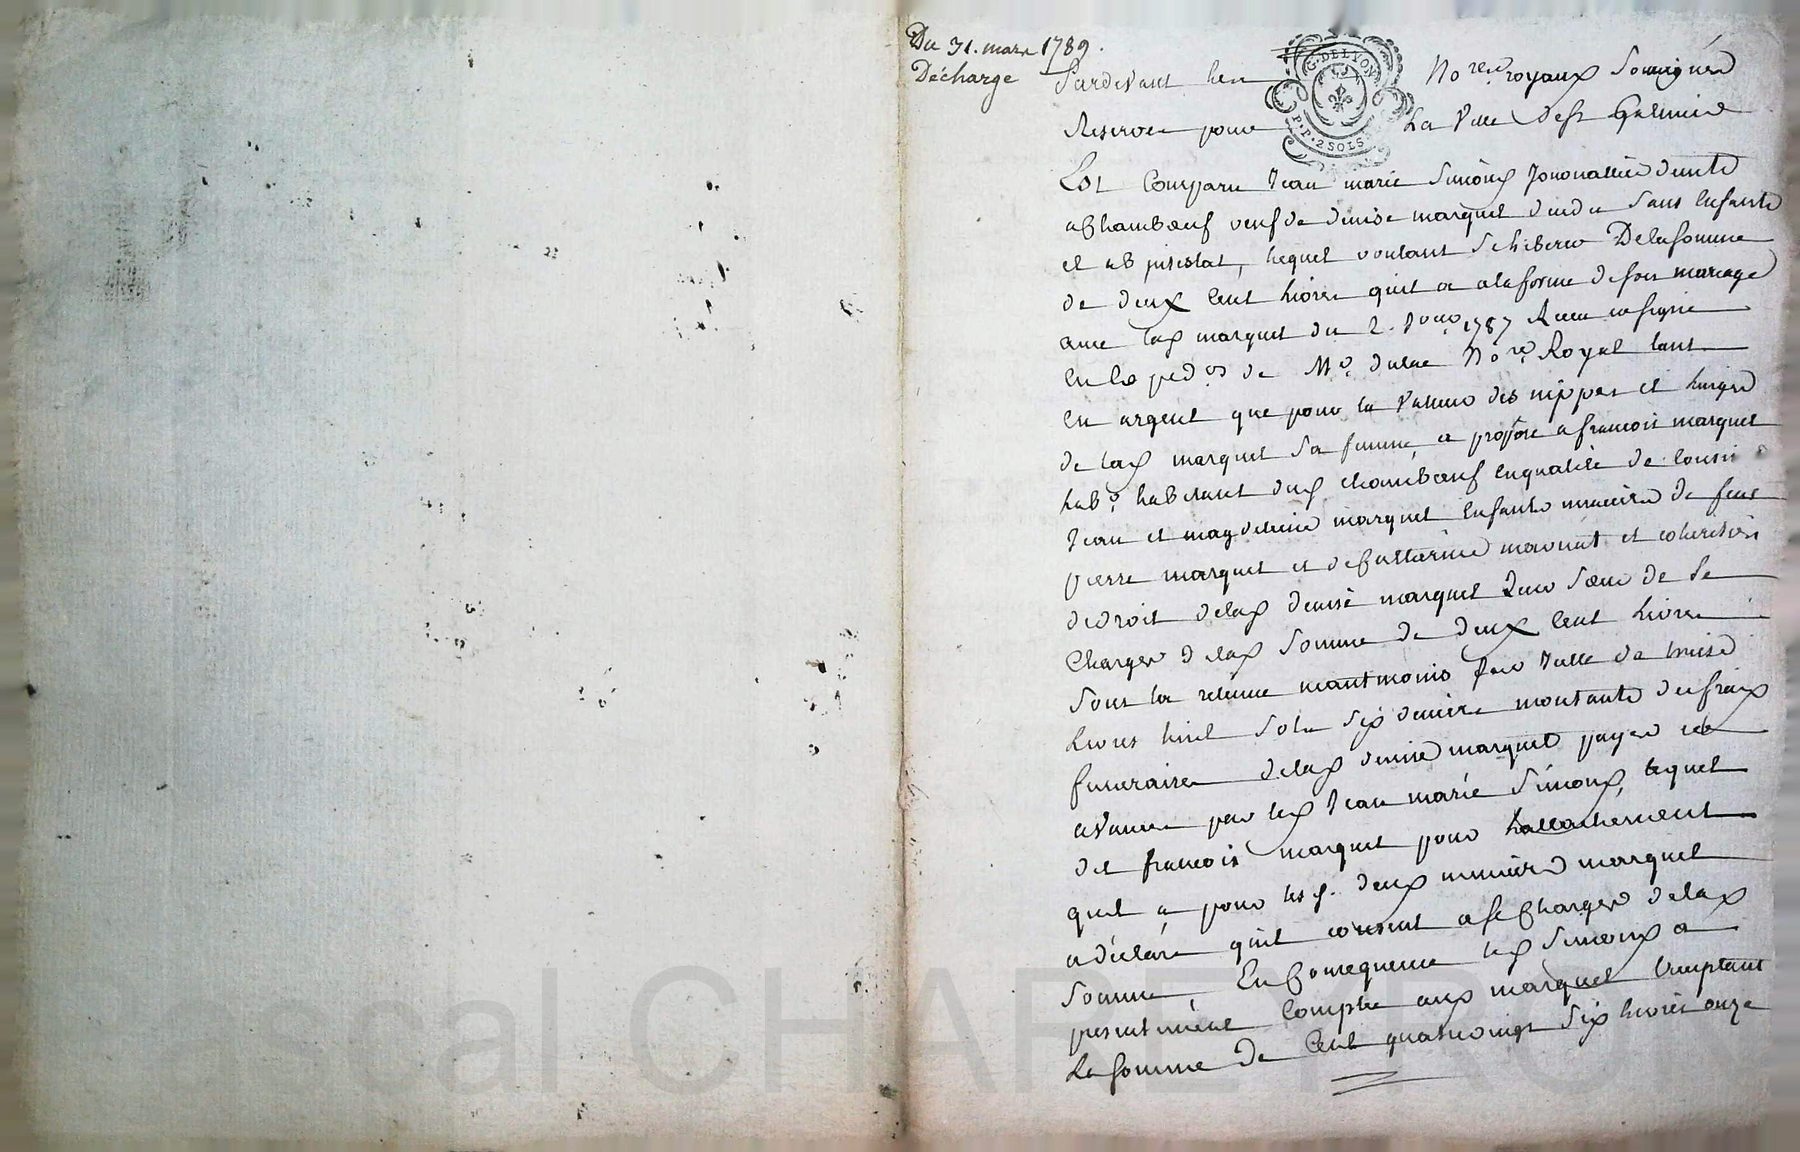 Du 31. mars 1789.
Décharge
Pardevant les No.res royaux soussignés
G. DE LYON
P.P. 2 SOLS
Reservés pour La Ville de St Galmier
Est Comparu Jean marie Simon
a Chambœuf veuf de denise marquet sans Enfants
et ab intestat, lequel voulant se liberer De la somme
de deux Cent livres quil a a la forme de son mariage
avec marquet du 2. 1787 Recu
de Me. dulac No.re Royal tant
En argent que pour la Valeur des nippes et linges
de marquet sa femme, a proposé a francois marquet
hab.t habitant chambœuf En qualité de
Jean et magdeleine marquet Enfants mineurs de feus
pierre marquet et de Catterine et
de droit de lad. denise marquet Leur sœur de se
Charger de lad. somme de deux Cent livres
sous la retenue neantmoins par Jcelle de treise
Livres huit sols six deniers montants des frais
funeraires de lad. denise marquet payés et
avancés par led. Jean marie Simon, lequel
dit francois marquet pour Lattachement
quil a pour les d. deux mineurs marquet
a declaré quil consent a se Charger de lad.
somme, En Consequence led. Simon a
presentement Compté aud. marquet Lacceptant
La somme De Cent quatrevingt six livres onze
cal CHAREYRON